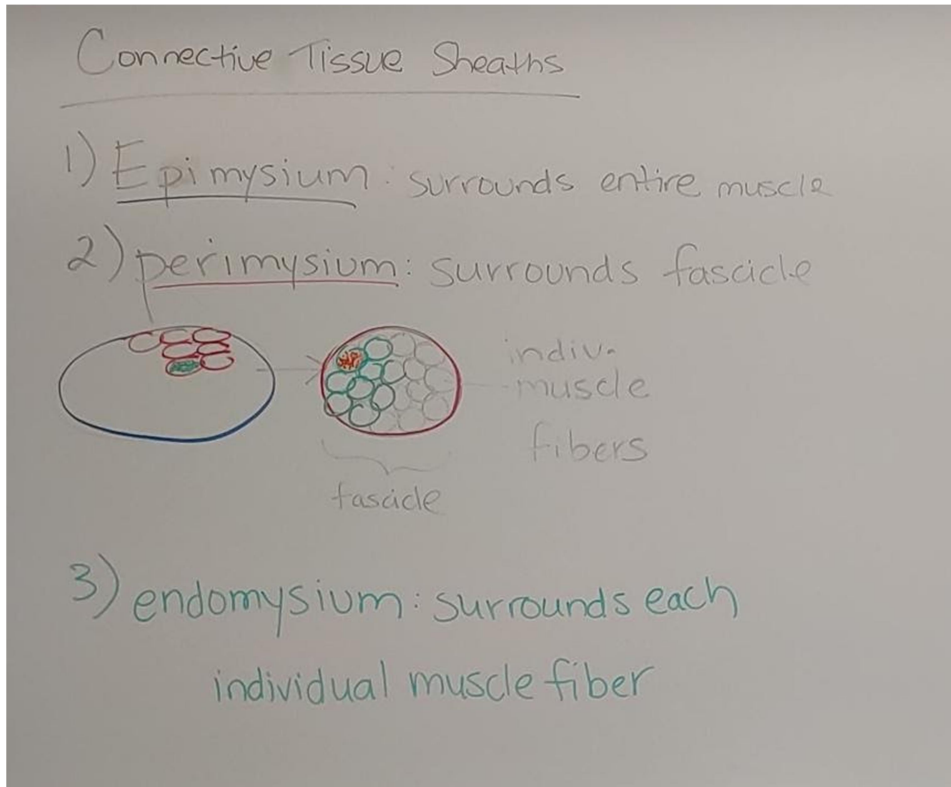 Connective Tissue Sheaths
1) Epimysium: surrounds entire muscle
2) perimysium: surrounds fascicle
indiv.
muscle
fibers
fascicle
3) endomysium: surrounds each
individual muscle fiber